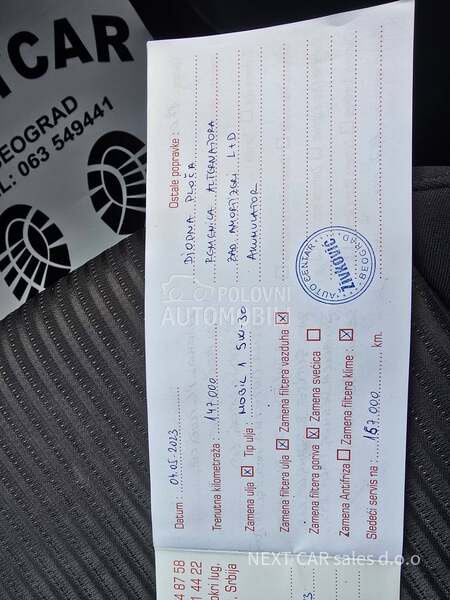 NEXT CAR
BEOGRAD
TEL: 063 549441
Datum : 04.05.2023
Trenutna kilometraža : 147.000
Zamena ulja ☒ Tip ulja : MOBIL 1 5W-30
Zamena filtera ulja ☒ Zamena filtera vazduha ☒
Zamena filtera goriva ☒ Zamena svećica ☐
Zamena Antifriza ☐ Zamena filtera klime : ☒
Sledeći servis na : 157.000 km.
Ostale popravke :
DIODNA PLOČA
REMENICA ALTERNATORA
ZAD. AMORTIZERI L+D
AKUMULATOR
AUTO CENTAR
ŽIVKOVIĆ
BEOGRAD
POLOVNI
AUTOMOBILI
4 87 58
1 44 22
okri lug,
, Srbija
NEXT CAR sales d.o.o